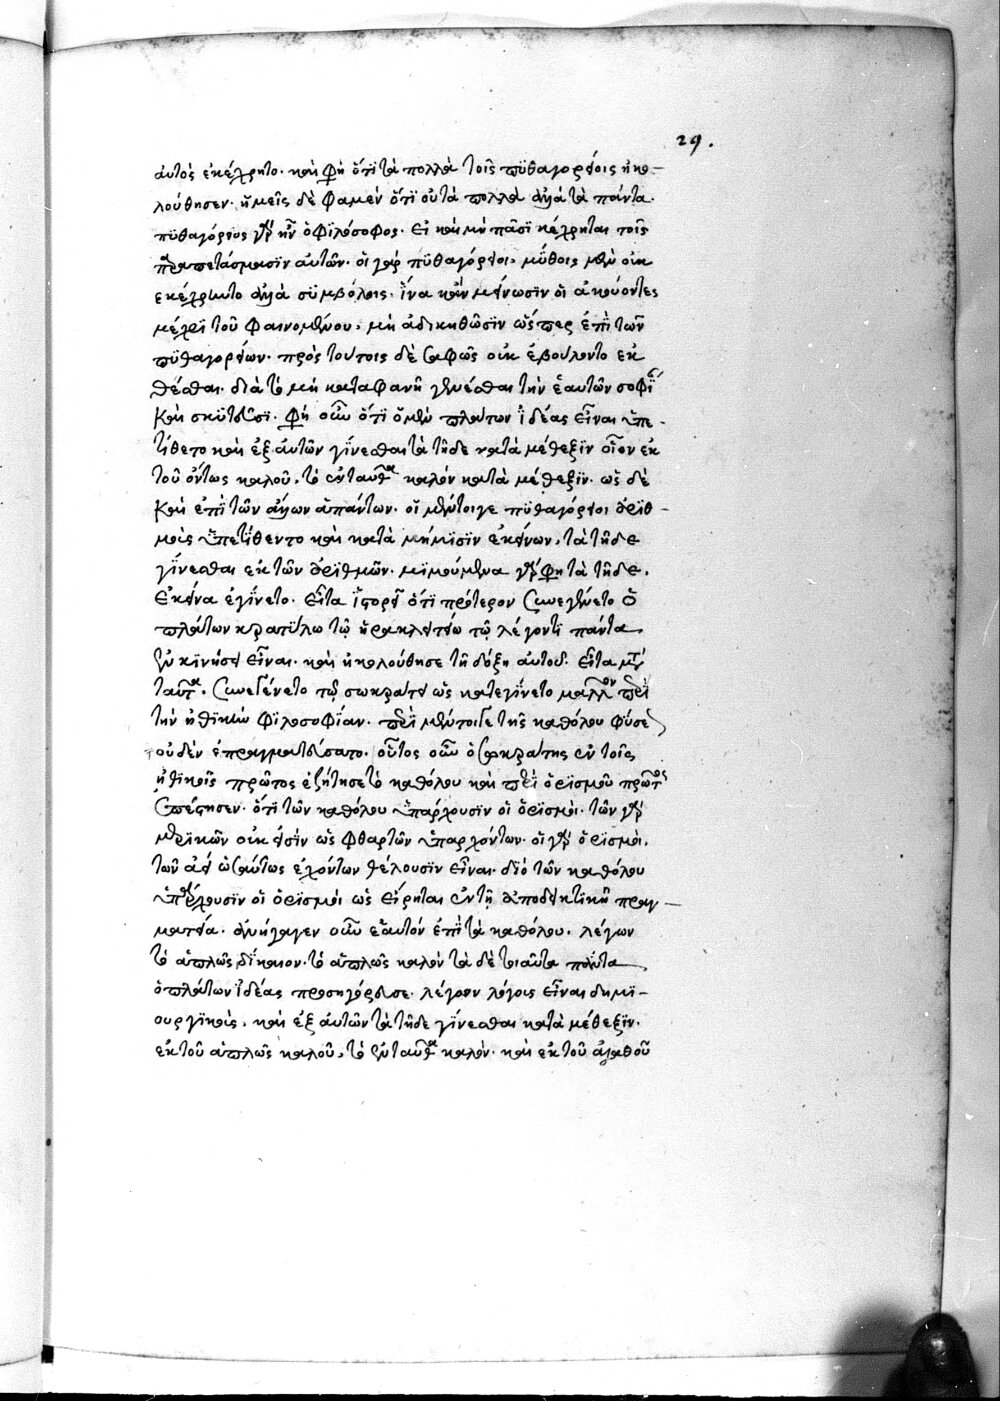 29.
αὐτὸς ἐκέχρητο. καὶ φη ὅτι τὰ πολλὰ τοῖς πυθαγορείοις ἠκο-
λούθησεν. ἡμεῖς δὲ φαμὲν ὅτι οὐ τὰ πολλὰ ἀλλὰ τὰ πάντα.
πυθαγόρειος γὰρ ἦν ὁ φιλόσοφος. εἰ καὶ μὴ πᾶσι κέχρηται τοῖς
παραπετάσμασιν αὐτῶν. οἱ γὰρ πυθαγόρειοι, μύθοις μὲν οὐκ
ἐκέχρηντο ἀλλὰ συμβόλοις. ἵνα κἂν μείνωσιν οἱ ἀκούοντες
μέχρι τοῦ φαινομένου, μὴ ἀδικηθῶσιν ὥσπερ ἐπὶ τῶν
πυθαγορείων. πρὸς τούτοις δὲ σαφῶς οὐκ ἐβούλοντο ἐκ
θέσθαι. διὰ τὸ μὴ καταφανῆ γενέσθαι τὴν ἑαυτῶν σοφί
καὶ σκυτεῦσι. φη οὖν ὅτι ὁ μὲν πλάτων ἰδέας εἶναι ὑπε-
τίθετο καὶ ἐξ αὐτῶν γίνεσθαι τὰ τῆδε κατὰ μέθεξιν οἷον ἐκ
τοῦ ὄντως καλοῦ, τὸ ἐνταῦθα καλὸν κατὰ μέθεξιν. ὡς δὲ
καὶ ἐπὶ τῶν ἄλλων ἁπάντων. οἱ μέντοιγε πυθαγόρειοι ἀριθ-
μοὺς ὑπετίθεντο καὶ κατὰ μίμησιν ἐκείνων, τὰ τῆδε
γίνεσθαι ἐκ τῶν ἀριθμῶν. μιμούμενα γὰρ φη τὰ τῆδε,
ἐκεῖνα ἐγίνετο. εἶτα ἱστορεῖ ὅτι πρότερον συνεγένετο ὁ
πλάτων κρατύλω τῶ ἡρακλειτείω τῶ λέγοντι πάντα
ἐν κινήσει εἶναι. καὶ ἠκολούθησε τῆ δόξη αὐτοῦ. εἶτα μετὰ
ταῦτα. συνεγένετο τῶ σωκράτει ὡς κατεγίνετο μᾶλλον περὶ
τὴν ἠθικὴν φιλοσοφίαν. περὶ μέντοιγε τῆς καθόλου φύσε
οὐδὲν ἐπραγματεύσατο. οὗτος οὖν ὁ σωκράτης ἐν τοῖς
ἠθικοῖς πρῶτος ἐζήτησε τὸ καθόλου καὶ περὶ ὁρισμοῦ πρῶτος
ἐπέστησεν. ὅτι τῶν καθόλου ὑπάρχουσιν οἱ ὁρισμοὶ. τῶν γὰρ
μερικῶν οὐκ εἰσὶν ὡς φθαρτῶν ὑπαρχόντων. οἱ γὰρ ὁρισμοὶ,
τῶν ἀεὶ ὡσαύτως ἐχόντων θέλουσιν εἶναι. διὸ τῶν καθόλου
ὑπάρχουσιν οἱ ὁρισμοὶ ὡς εἴρηται ἐν τῆ ἀποδεικτικῆ πραγ-
ματεία. ἀνήγαγεν οὖν ἑαυτὸν ἐπὶ τὰ καθόλου, λέγων
τὸ ἁπλῶς δίκαιον. τὸ ἁπλῶς καλὸν τὰ δὲ τοιαῦτα πάντα
ὁ πλάτων ἰδέας προσηγόρευσε. λέγων λόγους εἶναι δημι-
ουργικοὺς, καὶ ἐξ αὐτῶν τὰ τῆδε γίνεσθαι κατὰ μέθεξιν.
ἐκ τοῦ ἁπλῶς καλοῦ, τὸ ἐνταῦθα καλὸν. καὶ ἐκ τοῦ ἀγαθοῦ